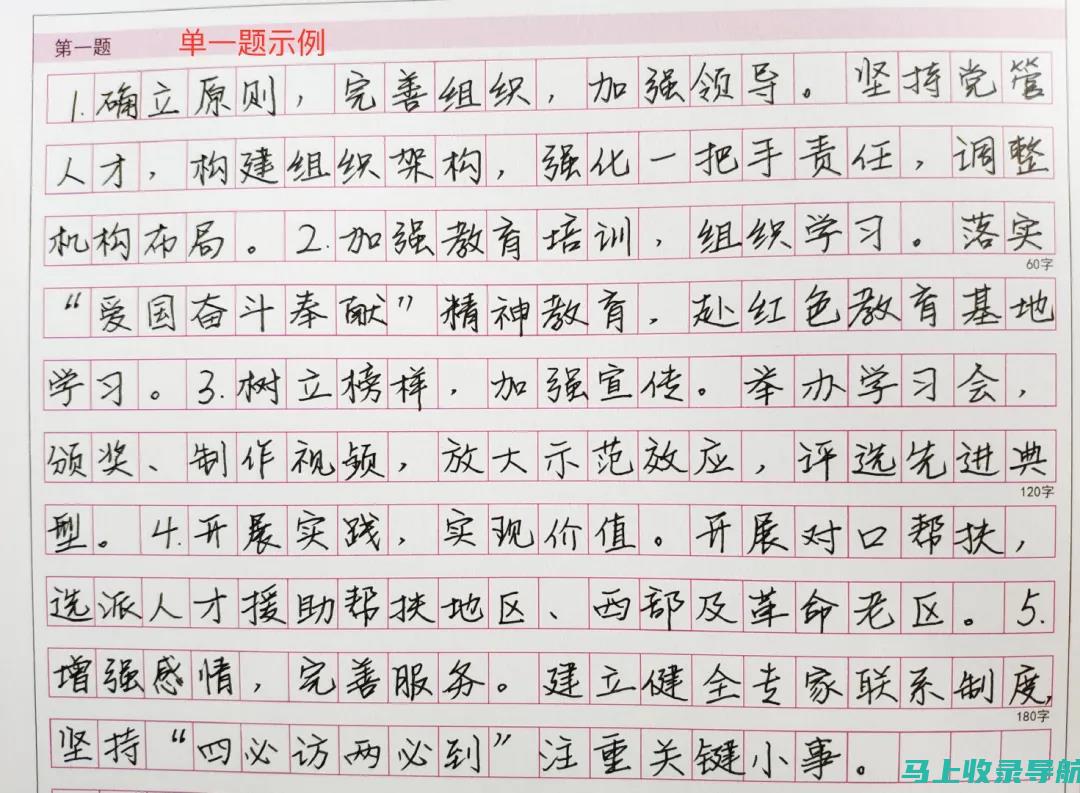 第一题 单一题示例
1.确立原则，完善组织，加强领导。坚持党管
人才，构建组织架构，强化一把手责任，调整
机构布局。2.加强教育培训，组织学习。落实
60字
“爱国奋斗奉献”精神教育，赴红色教育基地
学习。3.树立榜样，加强宣传。举办学习会，
颁奖、制作视频，放大示范效应，评选先进典
120字
型。4.开展实践，实现价值。开展对口帮扶，
选派人才援助帮扶地区、西部及革命老区。5.
增强感情，完善服务。建立健全专家联系制度，
180字
坚持“四必访两必到”注重关键小事。
马上收录导航